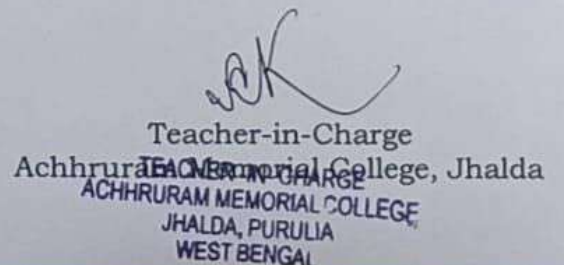 Teacher-in-Charge
Achhruram Memorial College, Jhalda
TEACHER-IN-CHARGE
ACHHRURAM MEMORIAL COLLEGE
JHALDA, PURULIA
WEST BENGAL